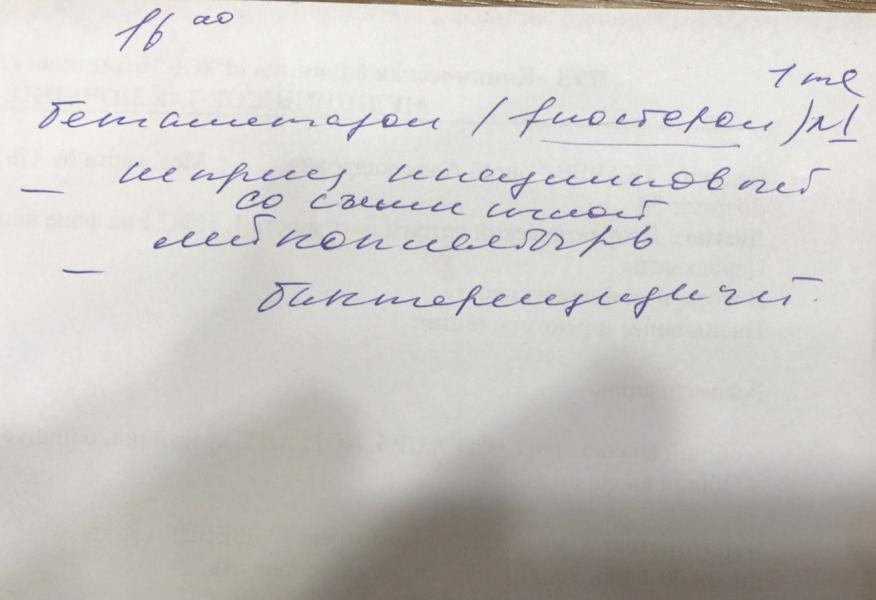 16 00
1 ml
Бетаметазон / флостерон) №1
— шприц инсулиновый
со съемн иглой
— лейкопластырь
бактерицидный